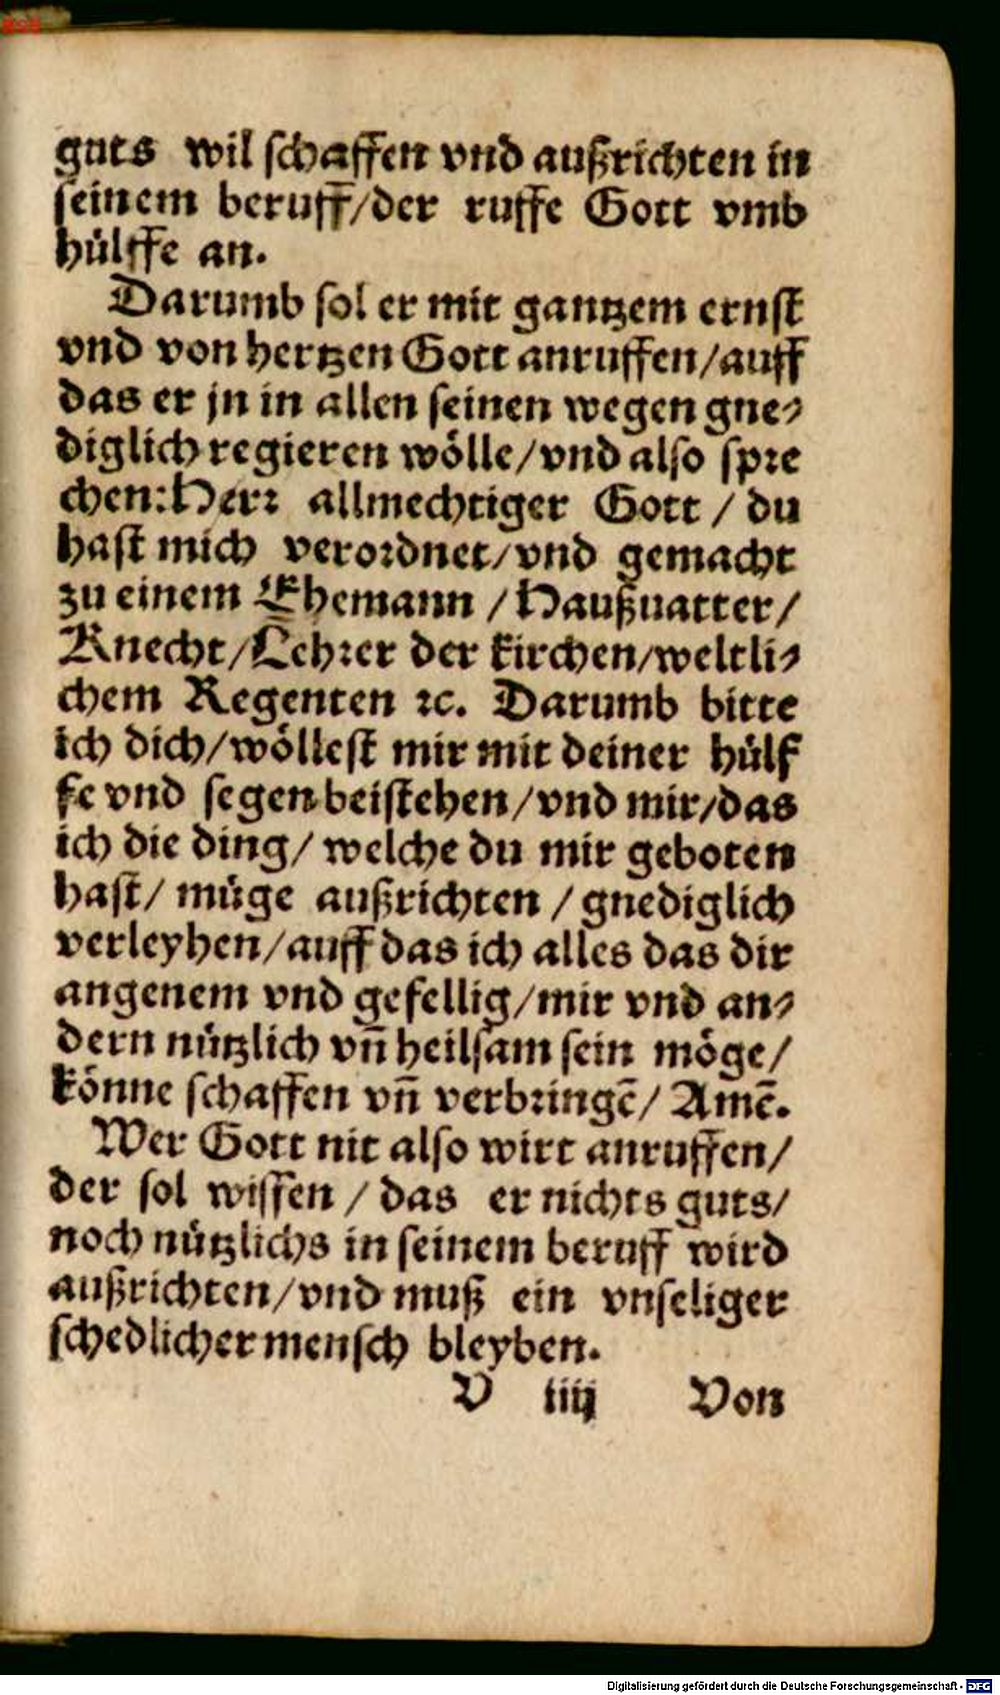 guts wil schaffen vnd außrichten in
seinem beruff/der ruffe Gott vmb
hülffe an.
Darumb sol er mit gantzem ernst
vnd von hertzen Gott anruffen/auff
das er jn in allen seinen wegen gne⸗
diglich regieren wölle/vnd also spre
chen: Herr allmechtiger Gott / du
hast mich verordnet/vnd gemacht
zu einem Ehemann / Haußuatter/
Knecht/Lehrer der kirchen/weltli⸗
chem Regenten ꝛc. Darumb bitte
ich dich/wöllest mir mit deiner hülf
fe vnd segen beistehen/vnd mir/das
ich die ding/ welche du mir geboten
hast/ müge außrichten / gnediglich
verleyhen/auff das ich alles das dir
angenem vnd gefellig/mir vnd an⸗
dern nützlich vñ heilsam sein möge/
könne schaffen vñ verbringē/ Amē.
Wer Gott nit also wirt anruffen/
der sol wissen / das er nichts guts/
noch nützlichs in seinem beruff wird
außrichten/vnd muß ein vnseliger
schedlicher mensch bleyben.
V iiij Von
Digitalisierung gefördert durch die Deutsche Forschungsgemeinschaft - DFG